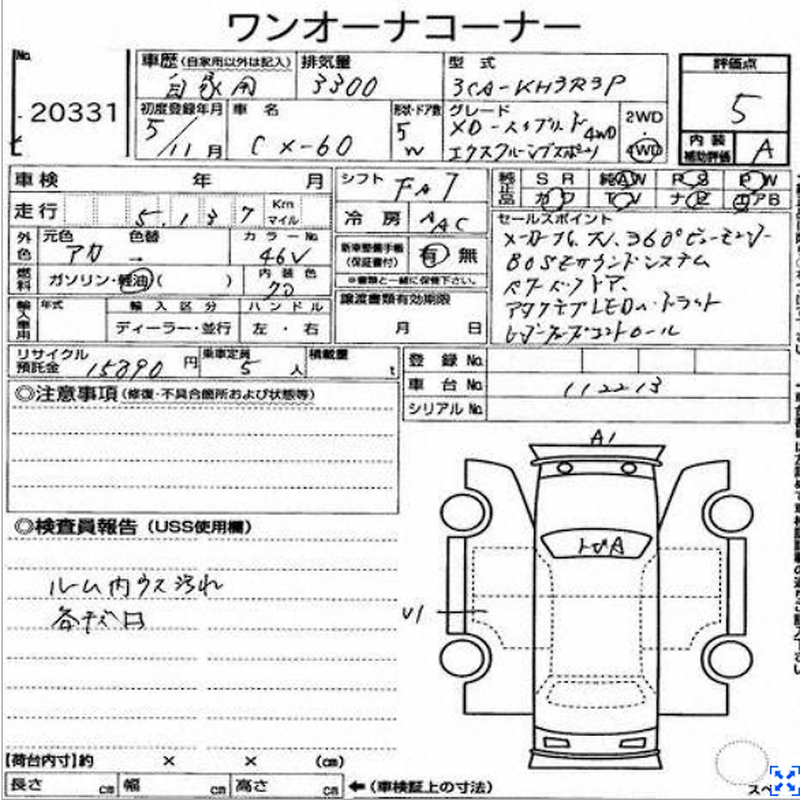 ワンオーナコーナー
No.
20331
車歴(自家用以外は記入)
自家用
排気量
3300
型式
3CA-KH3R3P
評価点
5
内装
補助評価
A
初度登録年月
5/11月
車名
CX-60
形状・ドア数
5
W
グレード
XD-ハイブリッド4WD
エクスクルーシブスポーツ
2WD
4WD
車検 年 月
シフト
FA7
純正品
SR 純AW PS PW
カワ TV ナビ エアB
走行
5,137
Km
マイル
冷房
AAC
セールスポイント
360°ビューモニター
BOSEサウンドシステム
パワーバックドア、
アダプティブLEDヘッドライト
レーダークルーズコントロール
外色
元色 色替 カラーNo.
アカ → 46V
新車整備手帳
(保証書付)
有・無
※書類と一緒に保管下さい。
燃料
ガソリン・軽油( )
内装色
クロ
譲渡書類有効期限
月 日
輸入車用
年式
輸入区分
ハンドル
ディーラー・並行
左・右
リサイクル
預託金
15890円
乗車定員
5人
積載量
t
登録No.
車台No.
112213
シリアルNo.
◎注意事項(修復・不具合箇所および状態等)
◎検査員報告(USS使用欄)
ルーム内ウス汚れ
各キズ凹
A1
トビA
U1
【荷台内寸】約 × × (cm)
長さ cm 幅 cm 高さ cm ←(車検証上の寸法)
スペ